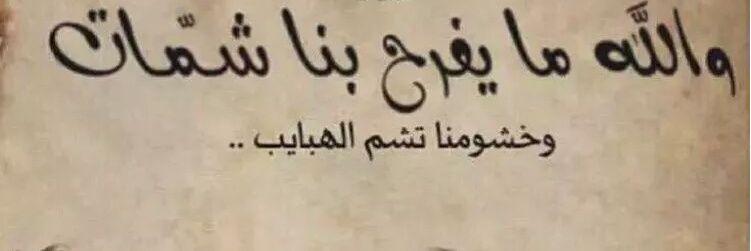 والله ما يفرح بنا شمّات
وخشومنا تشم الهبايب ..